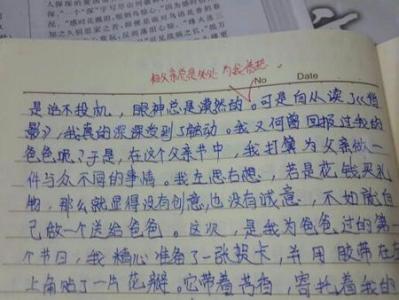 父亲总是处处为我着想
No Date
是话不投机，眼神总是漠然的。可是自从读了《背
影》，我真的深深受到了触动。我又何曾回报过我的
爸爸呢？于是，在这个父亲节中，我打算为父亲做一
件与众不同的事情。我左思右想，若是花钱买礼
物，那么就显得没有创意，也没有诚意，不如就自
己做一个送给爸爸。这次，是我为爸爸过的第一
个节日，我精心准备了一张贺卡，并用胶带在左
上角贴了一片花瓣。它带着芳香，寄托着我的